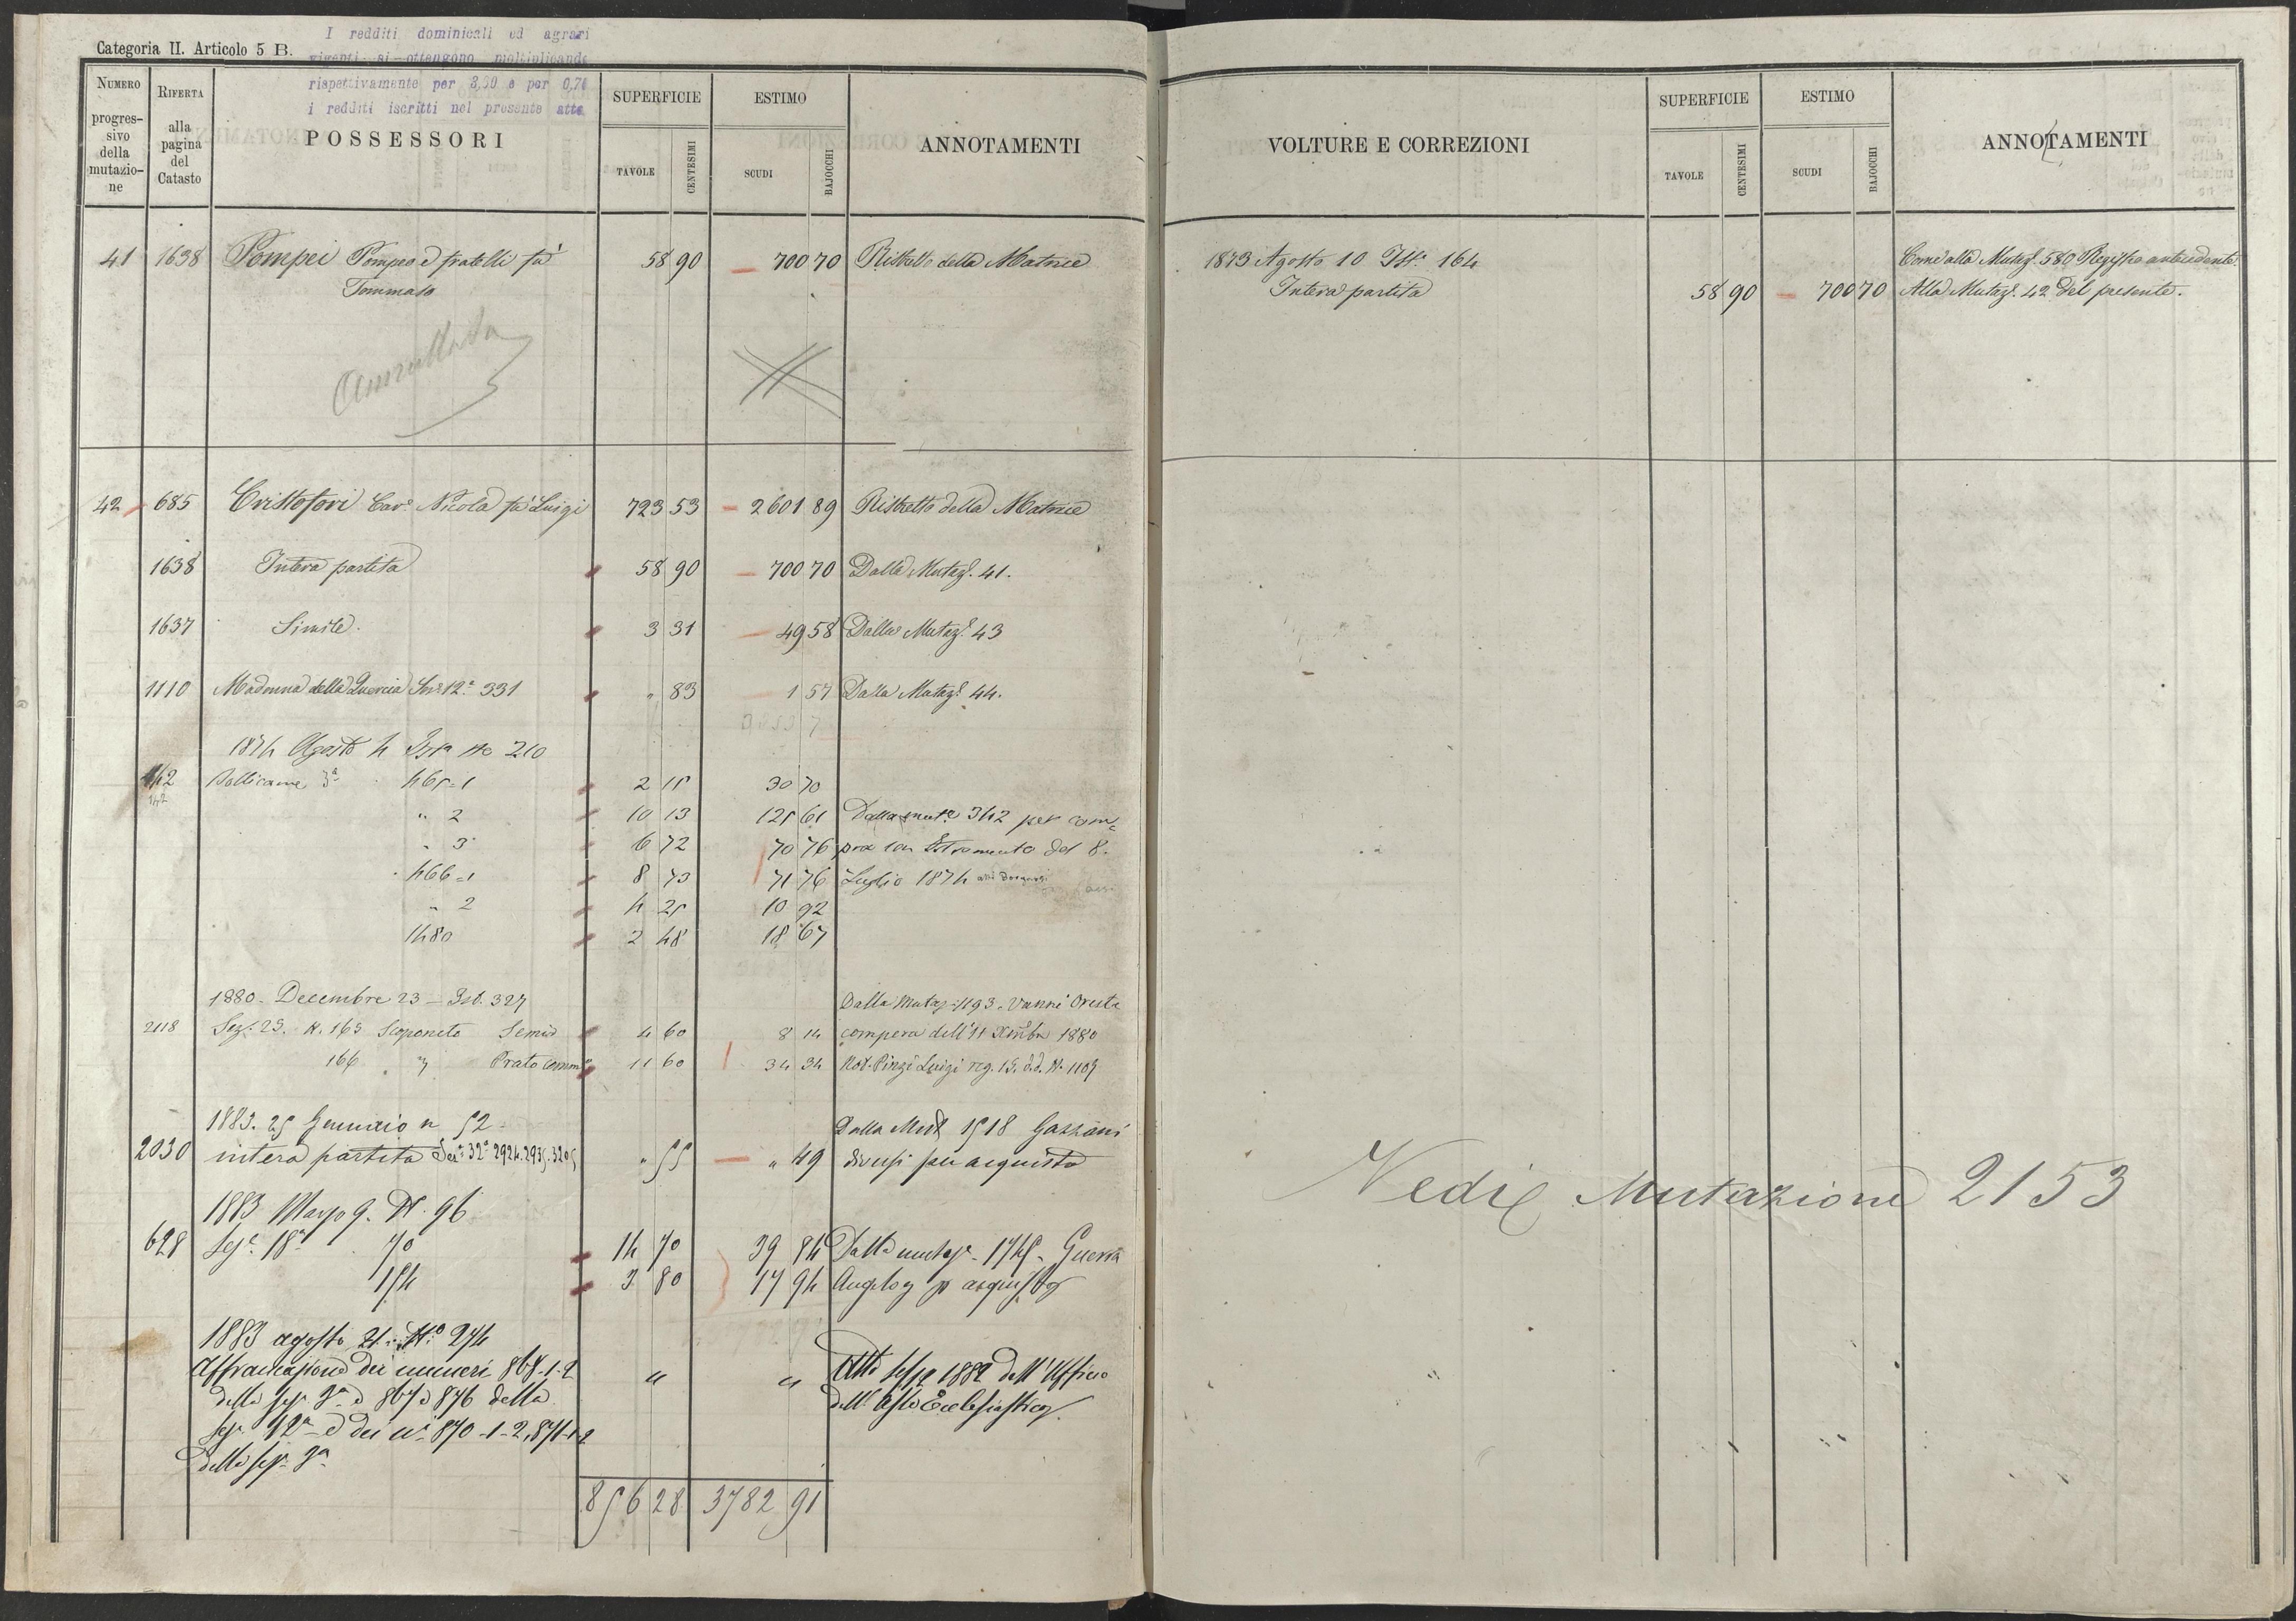 Categoria II. Articolo 5 B.
I redditi dominicali ed agrari
vigenti si ottengono moltiplicando
rispettivamente per 3,30 e per 0,70
i redditi iscritti nel presente atto
NUMERO progressivo della mutazione
RIFERTA alla pagina del Catasto
POSSESSORI
SUPERFICIE
TAVOLE CENTESIMI
ESTIMO
SCUDI BAJOCCHI
ANNOTAMENTI
41 1638 Pompei Pompeo e fratelli fù 58 90 700 70 Ristretto della Matrice
Tommaso
Annullata
42 685 Cristofori Cav.e Nicola fù Luigi 723 53 2601 89 Ristretto della Matrice
1638 Intera partita 58 90 700 70 Dalla Mutaz.e 41.
1637 Simile. 3 31 49 58 Dalla Mutaz.e 43
1110 Madonna della Quercia Sez. 12.a 331 " 83 1 57 Dalla Mutaz.e 44.
1874 Agosto 4 Ist.a No 210
142 Bollicame 3a 465=1 2 15 30 70
" 2 10 13 125 61 Dalla mut.e 342 per com=
" 3 6 72 70 76 pra con Istromento del 8.
466=1 8 73 71 76 Luglio 1874
" 2 4 25 10 92
1480 2 48 18 67
1880 - Decembre 23 = Ist. 327 Dalla Mutaz. 1193. Vanni Oreste
2118 Sez. 23. N. 165 Scoponeto Semi.o 4 60 8 14 compera dell'11 Xmbre 1880
166 " " Prato comm. 11 60 34 34 Not. Pinzi Luigi reg. 15. d.d. N. 1109
1883. 25 Gennaio n 52 Dalla Mut. 1518 Gazzani
2030 intera partita Sez. 32.a 2924. 2935. 3205 " 55 " 49 diversi per acquisto
1883 Marzo 9. N. 96
628 Sez.e 18a 70 14 70 39 84 Dalla mutaz. 1745. Guerra
154 3 80 17 94 Angelo p acquisto
1883 agosto 21. N.o 274
Affrancazione dei numeri 868-1-2 " " Atto 1882 dell'Ufficio
della sez. 3a e 867 e 876 della dell'Asse Ecclesiastico
sez. 12a e dei n.i 870-1-2, 871-1-2
della sez. 3a
856 28 3782 91
VOLTURE E CORREZIONI
SUPERFICIE
TAVOLE CENTESIMI
ESTIMO
SCUDI BAJOCCHI
ANNOTAMENTI
1873 Agosto 10 Ist.a 164 Come alla Mutaz.e 580 Registro antecedente.
Intera partita 58 90 700 70 Alla Mutaz.e 42 del presente.
Vedi Mutazione 2153